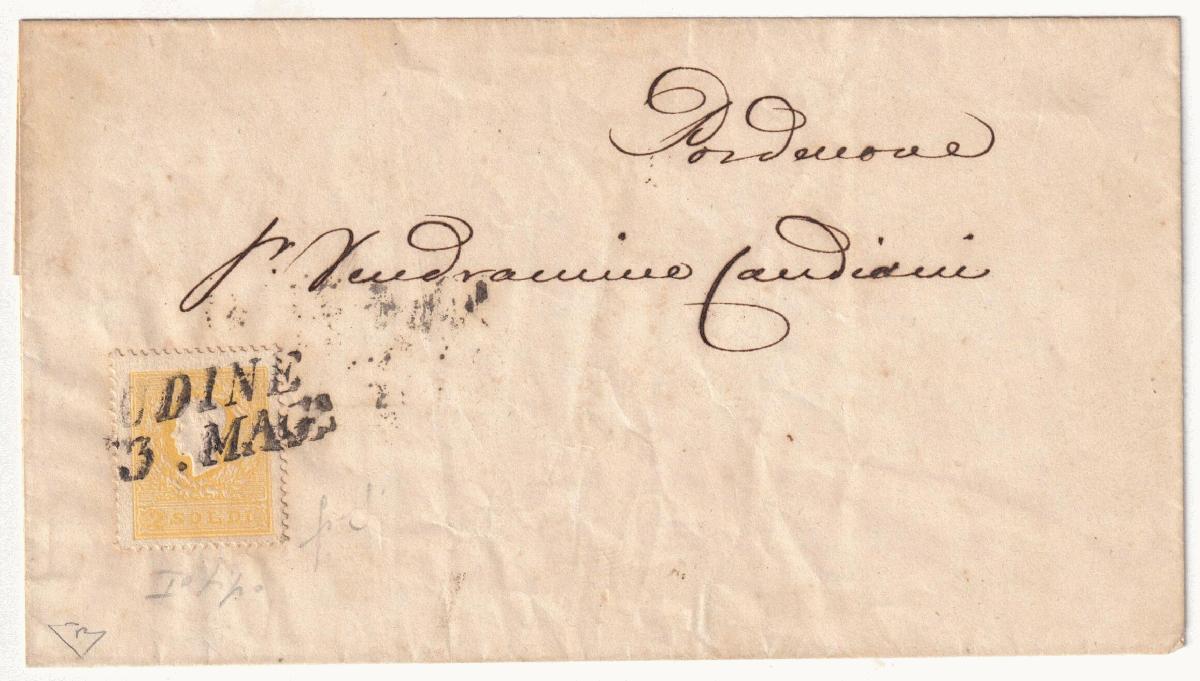 Pordenone
Sr. Vendramine Candiani
UDINE
3. MAG.
2 SOLDI